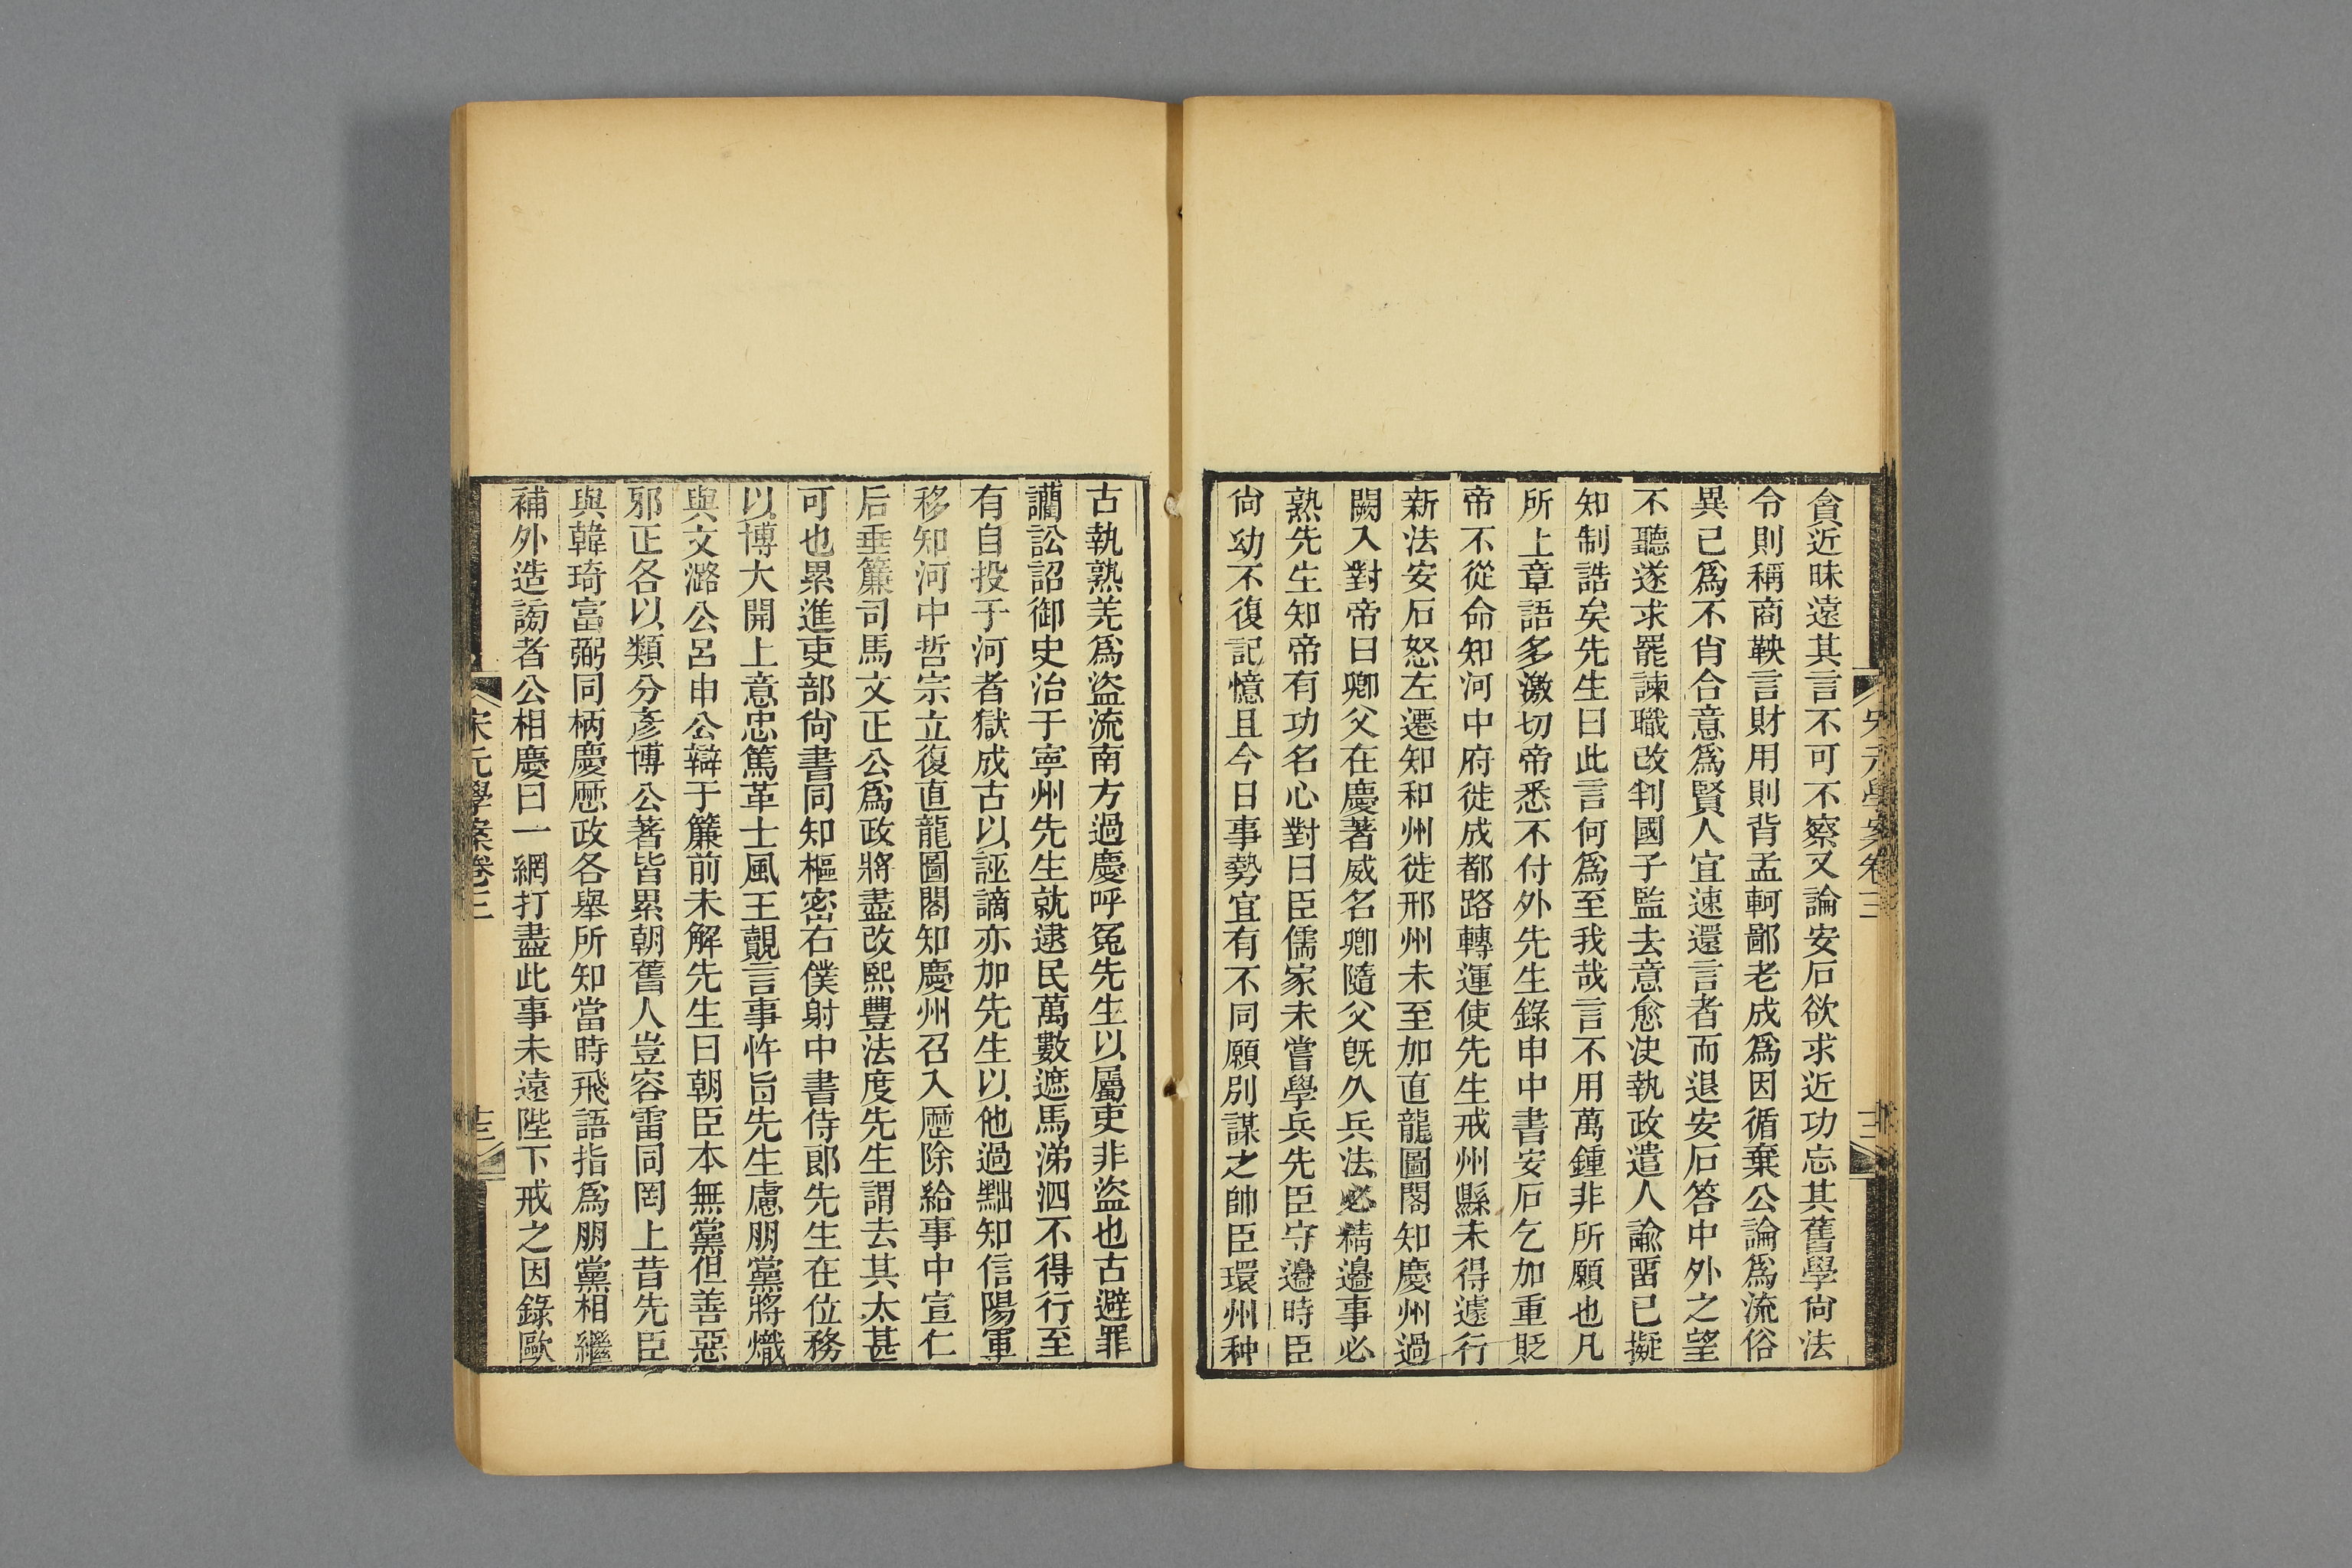 貪近昧遠其言不可不察又論安石欲求近功忘其舊學尙法
令則稱商鞅言財用則背孟軻鄙老成爲因循棄公論爲流俗
異己爲不肖合意爲賢人宜速還言者而退安石答中外之望
不聽遂求罷諫職改判國子監去意愈決執政遣人諭畱已擬
知制誥矣先生曰此言何爲至我哉言不用萬鍾非所願也凡
所上章語多激切帝悉不付外先生錄申中書安石乞加重貶
帝不從命知河中府徙成都路轉運使先生戒州縣未得遽行
新法安石怒左遷知和州徙邢州未至加直龍圖閣知慶州過
闕入對帝曰卿父在慶著威名卿隨父旣久兵法必精邊事必
熟先生知帝有功名心對曰臣儒家未嘗學兵先臣守邊時臣
尙幼不復記憶且今日事勢宜有不同願別謀之帥臣環州种
宋元學案卷三
古執熟羌爲盜流南方過慶呼冤先生以屬吏非盜也古避罪
讕訟詔御史治于寧州先生就逮民萬數遮馬涕泗不得行至
有自投于河者獄成古以誣謫亦加先生以他過黜知信陽軍
移知河中哲宗立復直龍圖閣知慶州召入歷除給事中宣仁
后垂簾司馬文正公爲政將盡改熙豐法度先生謂去其太甚
可也累進吏部尙書同知樞密右僕射中書侍郎先生在位務
以博大開上意忠篤革士風王覿言事忤旨先生慮朋黨將熾
與文潞公呂申公辯于簾前未解先生曰朝臣本無黨但善惡
邪正各以類分彥博公著皆累朝舊人豈容雷同罔上昔先臣
與韓琦富弼同柄慶歷政各舉所知當時飛語指爲朋黨相繼
補外造謗者公相慶曰一網打盡此事未遠陛下戒之因錄歐
宋元學案卷三
十三